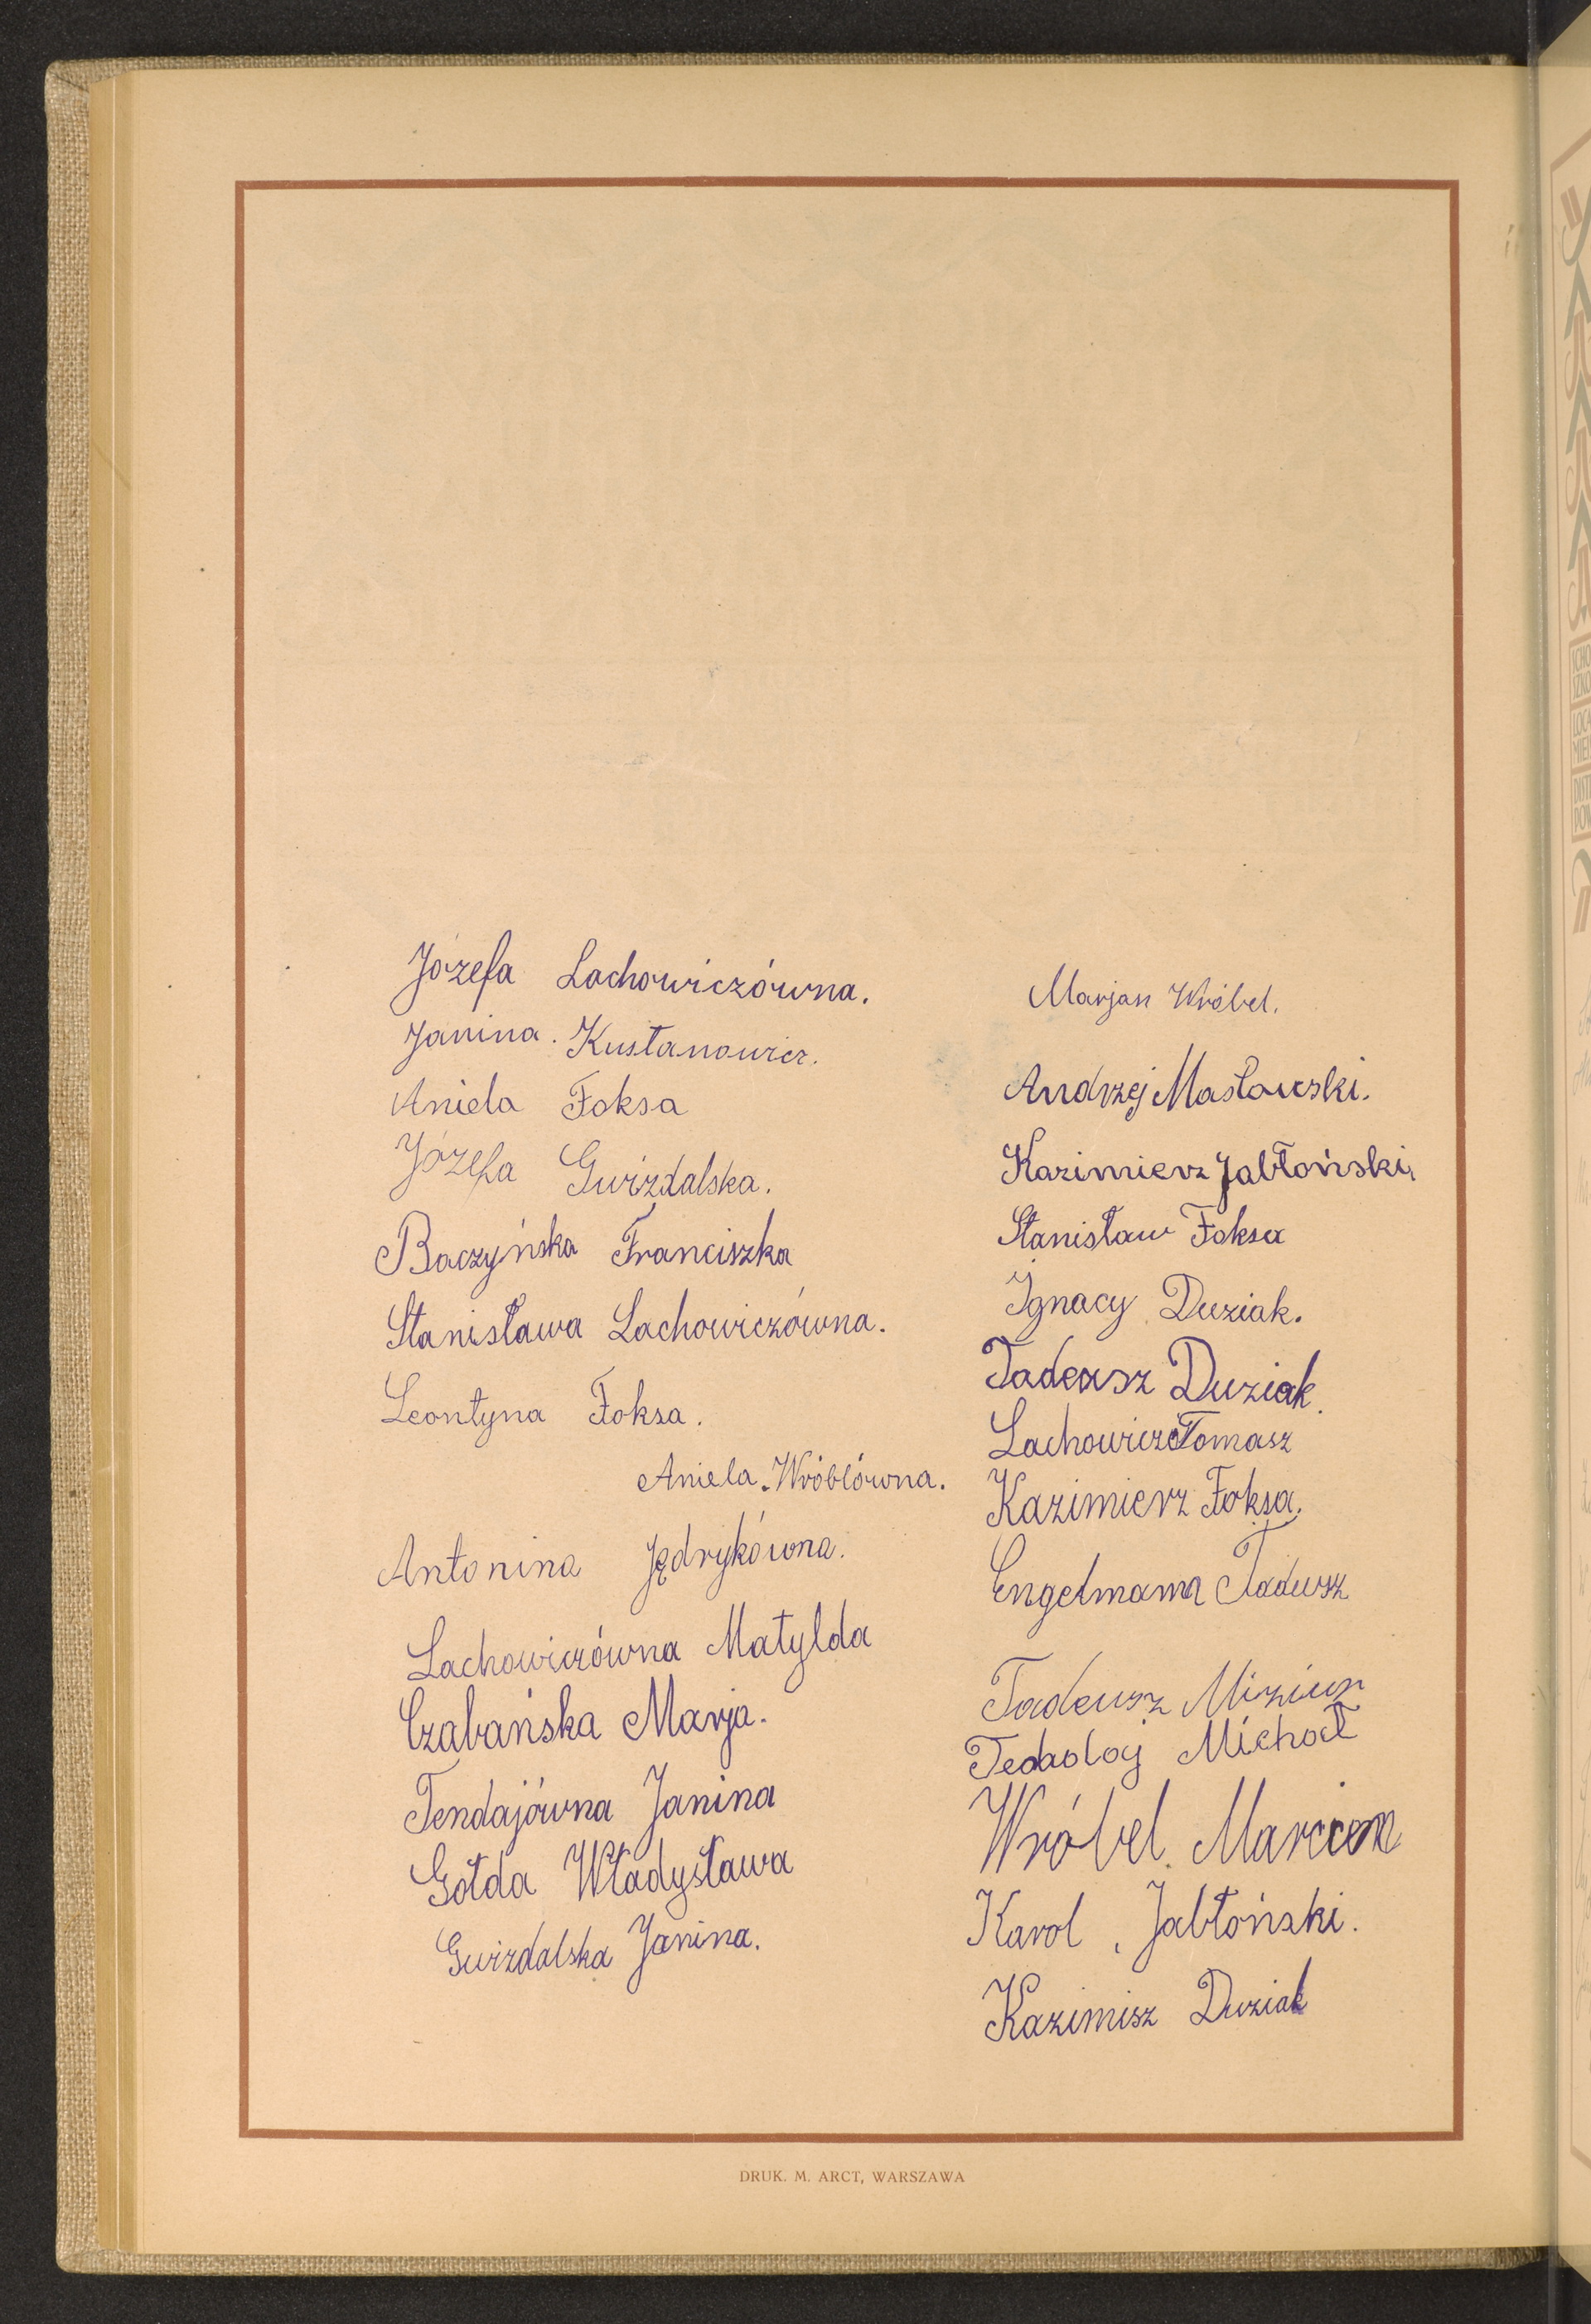 Józefa Lachowiczówna.
Janina. Kustanowicz.
Aniela Foksa
Józefa Gwizdalska.
Baczyńska Franciszka
Stanisława Lachowiczówna.
Leontyna Foksa.
Aniela. Wróblówna.
Antonina Jędrykówna.
Lachowiczówna Matylda
Czabańska Marja.
Tendajówna Janina
Gołda Władysława
Gwizdalska Janina.
Marjan Wróbel.
Andrzej Masłowski.
Kazimierz Jabłoński.
Stanisław Foksa
Ignacy Duziak.
Tadeusz Duziak.
Lachowicz Tomasz
Kazimierz Foksa.
Engelmann Tadeusz
Tadeusz Miziur
Michał
Wróbel Marcin
Karol Jabłoński.
Kazimisz Duziak
DRUK. M. ARCT, WARSZAWA